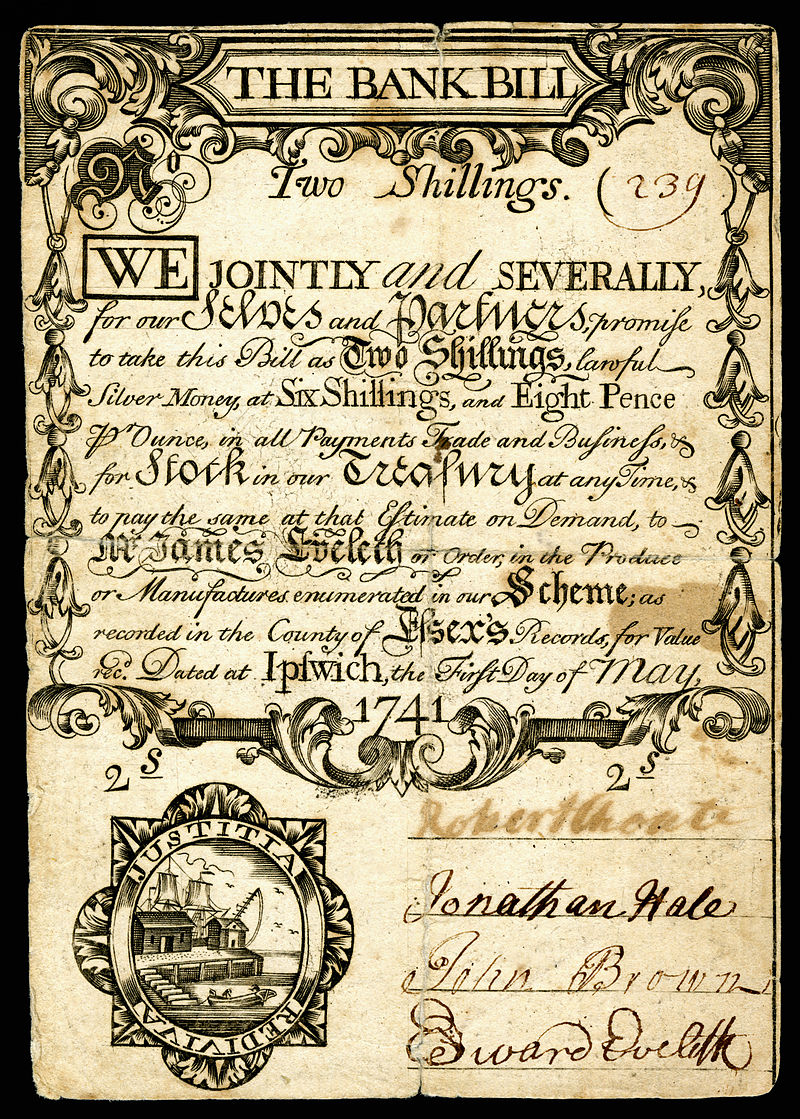 THE BANK BILL
No
Two Shillings. (239)
WE JOINTLY and SEVERALLY,
for our Selves and Partners, promise
to take this Bill as Two Shillings, lawful
Silver Money, at Six Shillings, and Eight Pence
Pr Ounce, in all Payments Trade and Business, &
for Stock in our Treaſury at any Time, &
to pay the same at that Eſtimate on Demand, to
Mr James Eveleth or Order, in the Produce
or Manufactures enumerated in our Scheme; as
recorded in the County of Eſsex's Records, for Value
recd. Dated at Ipſwich, the First Day of May,
1741
2s 2s
JUSTITIA
REDIVIVA
Robert Choate
Jonathan Hale
John Brown
Edward Eveleth